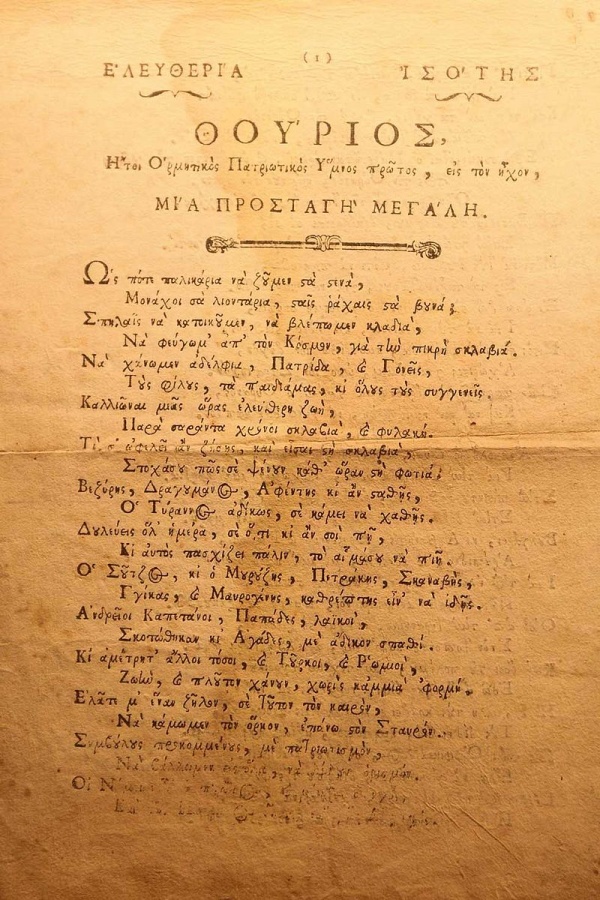 (1)
ἘΛΕΥΘΕΡΊΑ ἸΣΌΤΗΣ
ΘΟΎΡΙΟΣ,
Ἤτοι Ὁρμητικὸς Πατριωτικὸς Ὕμνος πρῶτος, εἰς τὸν ἦχον,
ΜΊΑ ΠΡΟΣΤΑΓῊ ΜΕΓΆΛΗ.
Ὡς πότε παλικάρια νὰ ζοῦμεν στὰ στενὰ,
Μονάχοι σὰ λιοντάρια, σταῖς ῥάχαις στὰ βουνά;
Σπηλαῖς νὰ κατοικοῦμεν, νὰ βλέπωμεν κλαδιὰ,
Νὰ φεύγωμ' ἀπ' τὸν Κόσμον, γιὰ τὴν πικρὴ σκλαβιά.
Νὰ χάνωμεν ἀδέλφια, Πατρίδα, καὶ Γονεῖς,
Τοὺς φίλους, τὰ παιδιάμας, κι ὅλους τοὺς συγγενεῖς.
Καλλιῶναι μιᾶς ὥρας ἐλεύθερη ζωὴ,
Παρὰ σαράντα χρόνοι σκλαβιὰ, καὶ φυλακή.
Τί σ' ὠφελεῖ ἂν ζήσῃς, καὶ εἶσαι στὴ σκλαβιὰ,
Στοχάσου πῶς σὲ ψένουν καθ' ὥραν στὴ φωτιά.
Βεζύρης, Δραγουμάνος, Ἀφέντης κι ἂν σταθῇς,
Ὁ Τύραννος ἀδίκως, σὲ κάμει νὰ χαθῇς.
Δουλεύεις ὅλ' ἡμέρα, σὲ ὅ,τι κι ἂν σοὶ πῇ,
Κι αὐτὸς πασχίζει πάλιν, τὸ αἷμάσου νὰ πιῇ.
Ὁ Σοῦτζος, κι ὁ Μουρούζης, Πετράκης, Σκαναβῆς,
Γγίκας, καὶ Μαυρογένης, καθρέπτης εἶν' νὰ ἰδῇς.
Ἀνδρεῖοι Καπετάνοι, Παπάδες, λαϊκοὶ,
Σκοτώθηκαν κι Ἀγάδες, μὲ ἄδικον σπαθί.
Κι ἀμέτρητ' ἄλλοι τόσοι, καὶ Τοῦρκοι, καὶ Ῥωμιοὶ,
Ζωὴν, καὶ πλοῦτον χάνουν, χωρὶς κάμμιὰ 'φορμή.
Ἐλᾶτε μ' ἕναν ζῆλον, σὲ τοῦτον τὸν καιρὸν,
Νὰ κάμωμεν τὸν ὅρκον, ἐπάνω στὸν Σταυρόν.
Συμβούλους προκομμένους, μὲ πατριωτισμὸν,
Νὰ βάλλωμεν
Οἱ Ν